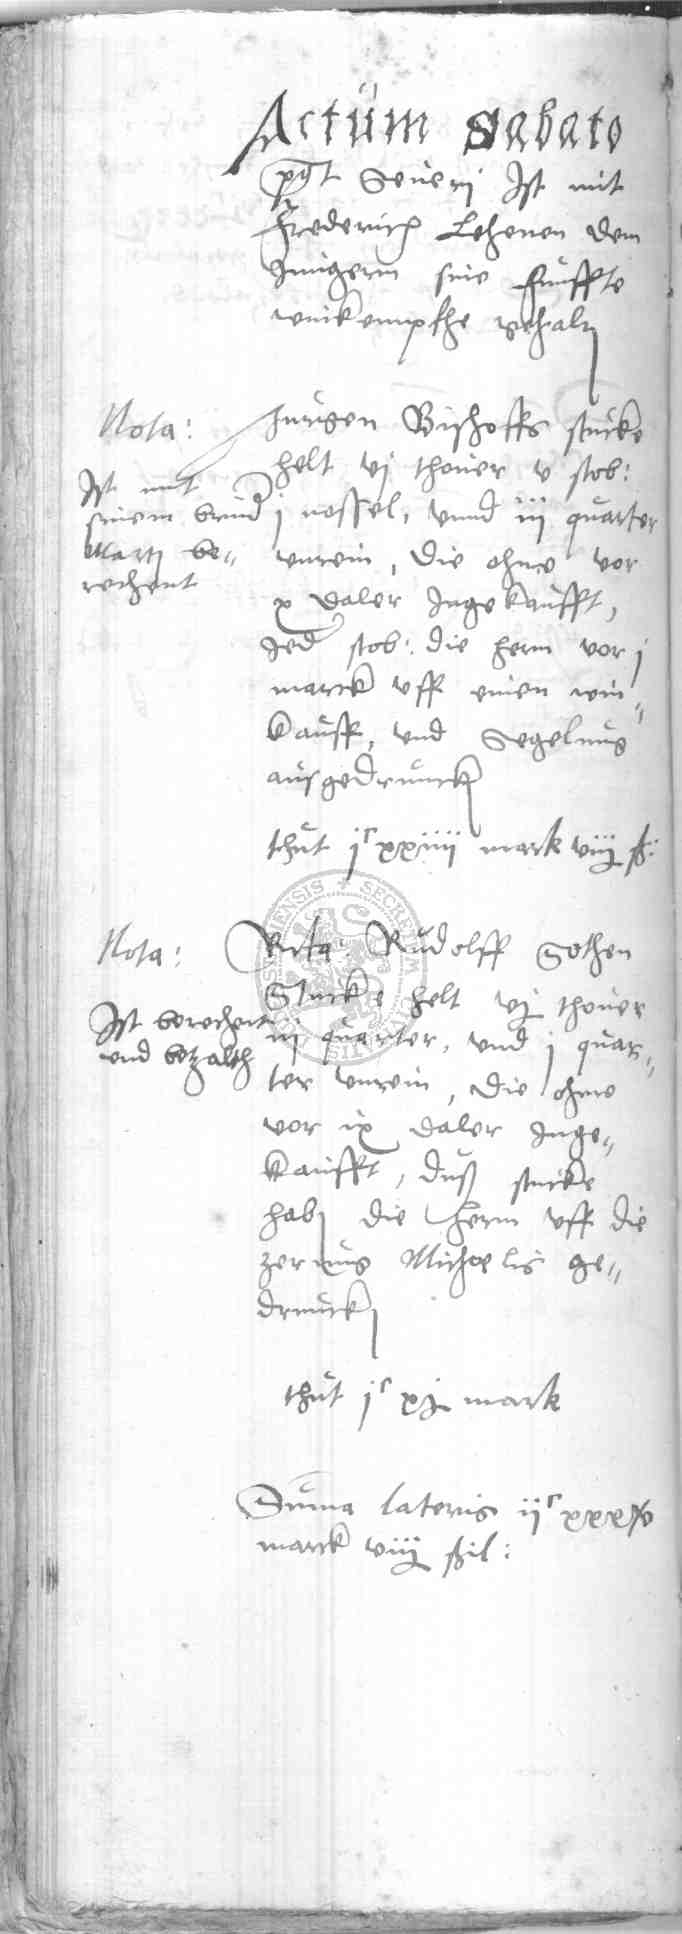 Actum Sabato
pqt Severi Ist mit
Frederich Lehenen dem
Jungern sine funffte
winkempffhe gehalt
Nota:
Jurgen Bischoffs stucke
helt vj thover v stob:
j nossel, vnnd iij quarter
vnrein, die ohne vor
x daler Ingekaufft,
Jed stob: die hern vor j
marck vff einen win„
kauff, vnd Segelung
ausgedruckt
Ist mit
sinem brud
Marty be„
rechent
thut jc xxiiii mark viij ß:
Nota:
Rudolff Gothen
Stucke helt vj thover
iij quarter, vnd j quar„
ter vnrein, die ohne
vor ix daler Inge„
kaufft, duß stucke
hab die hern vff die
zerung Michaelis ge„
druckt
Ist berechent
vnd betzalth
thut jc xj mark
Suma lateris ijc xxxv
marck viij ßil:
SECRETUM